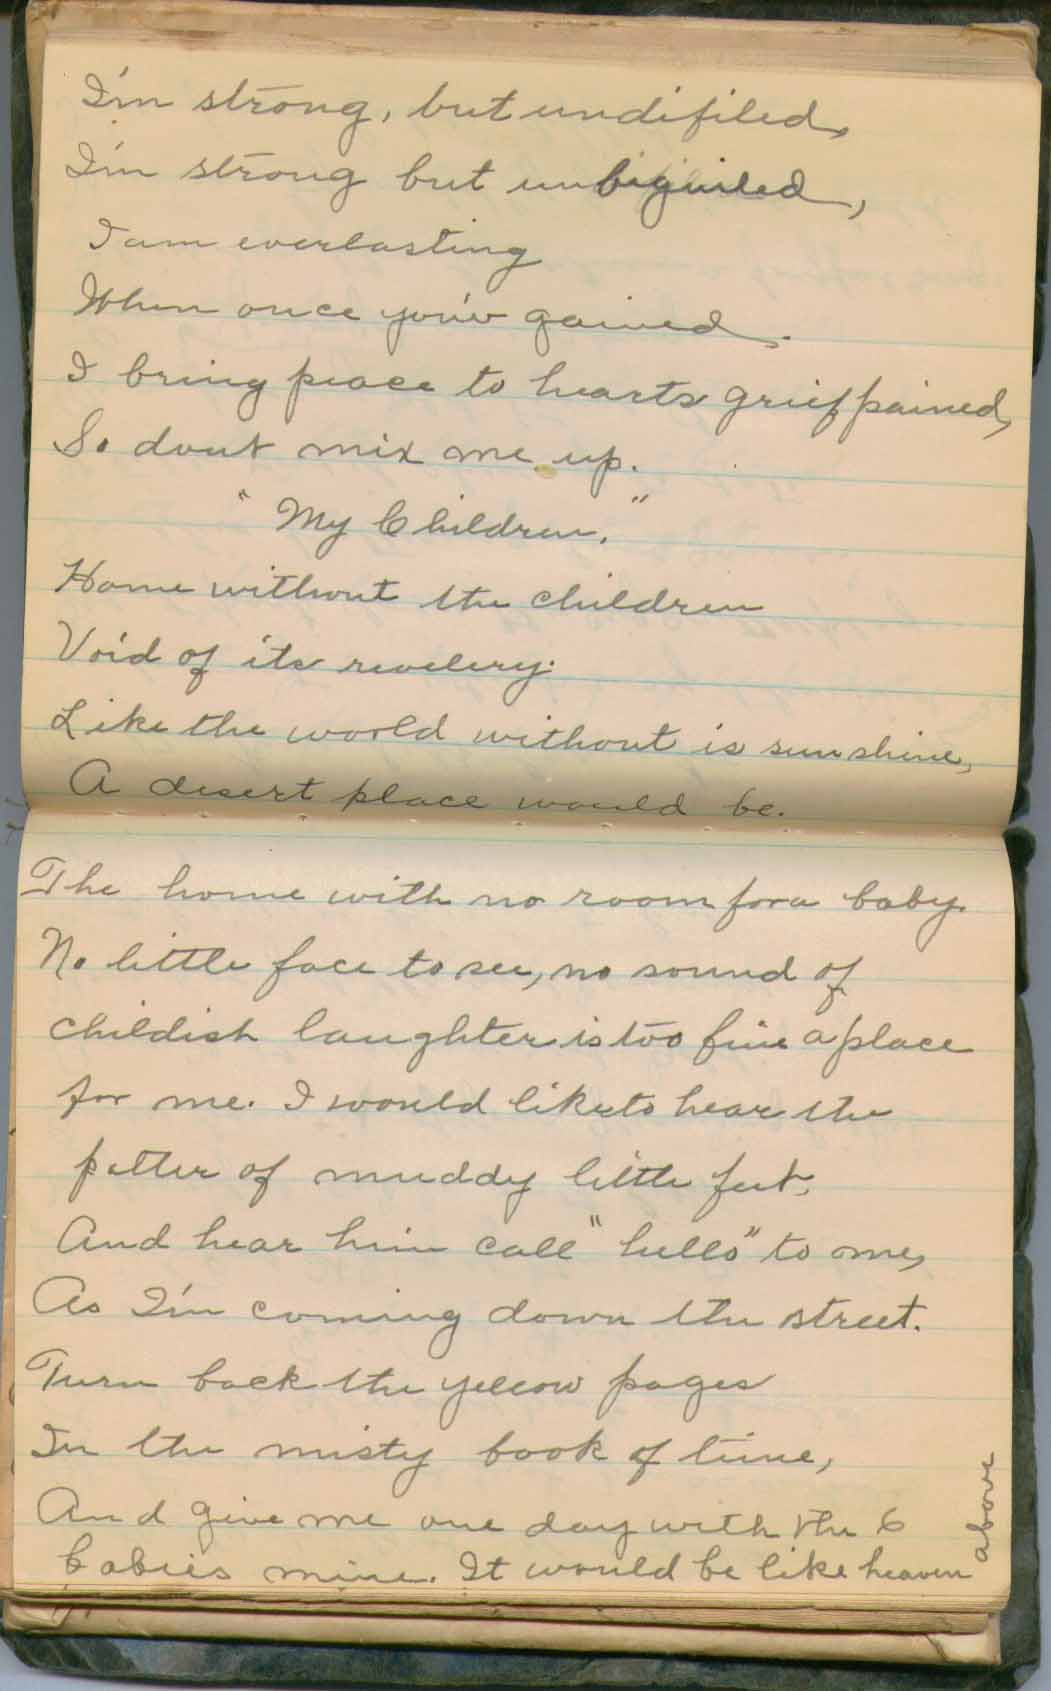 I'm strong, but undifiled,
I'm strong but unbiguiled,
I am everlasting
When once you'v gained.
I bring peace to hearts grief pained,
So dont mix me up.
"My Children."
Home without the children
Void of its revelery.
Like the world without is sunshine,
A desert place would be.
The home with no room for a baby.
No little face to see, no sound of
childish laughter is too fine a place
for me. I would like to hear the
patter of muddy little feet,
And hear him call "hello" to me,
As I'm coming down the street.
Turn back the yellow pages
In the misty book of time,
And give me one day with the 6
babies mine. It would be like heaven
above